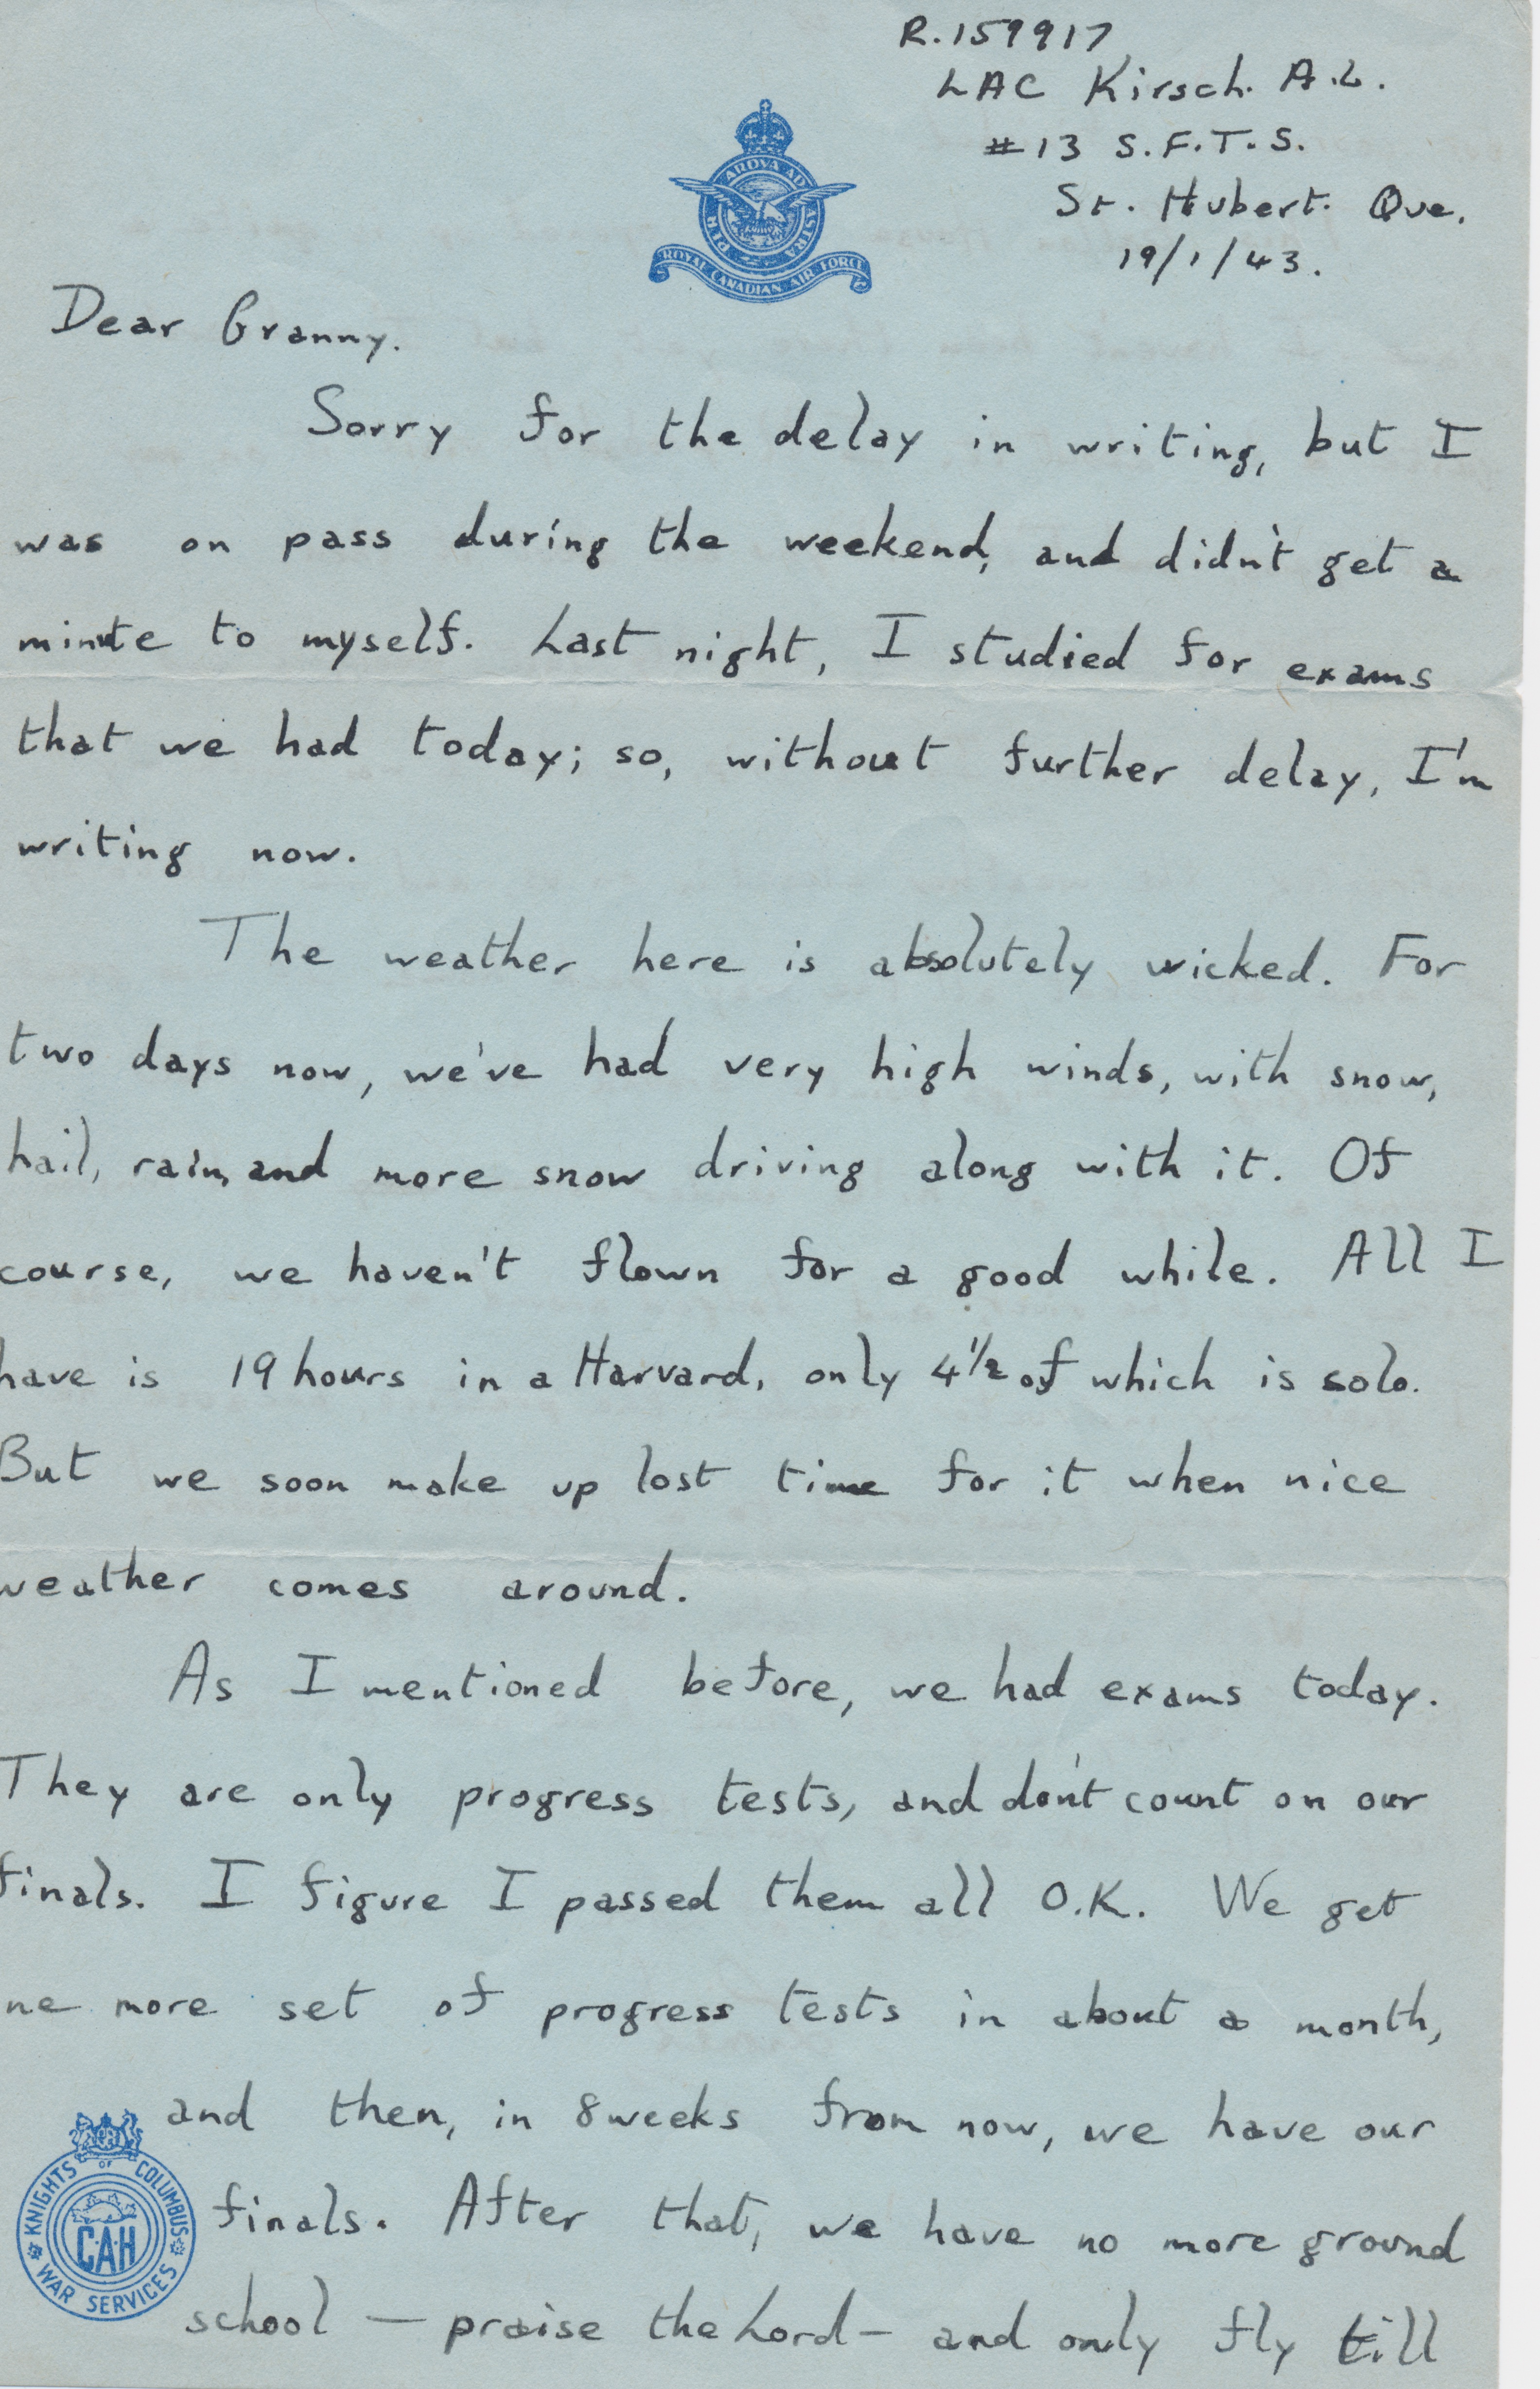 R.159917
LAC Kirsch. A.L.
#13 S.F.T.S.
St. Hubert. Que.
19/1/43.
PER ARDVA AD ASTRA
ROYAL CANADIAN AIR FORCE
Dear Granny.
Sorry for the delay in writing, but I
was on pass during the weekend, and didn't get a
minute to myself. Last night, I studied for exams
that we had today; so, without further delay, I'm
writing now.
The weather here is absolutely wicked. For
two days now, we've had very high winds, with snow,
hail, rain, and more snow driving along with it. Of
course, we haven't flown for a good while. All I
have is 19 hours in a Harvard, only 4 1/2 of which is solo.
But we soon make up lost time for it when nice
weather comes around.
As I mentioned before, we had exams today.
They are only progress tests, and don't count on our
finals. I figure I passed them all O.K. We get
ne more set of progress tests in about a month,
and then, in 8 weeks from now, we have our
finals. After that, we have no more ground
school — praise the Lord — and only fly till
KNIGHTS OF COLUMBUS
C.A.H
WAR SERVICES